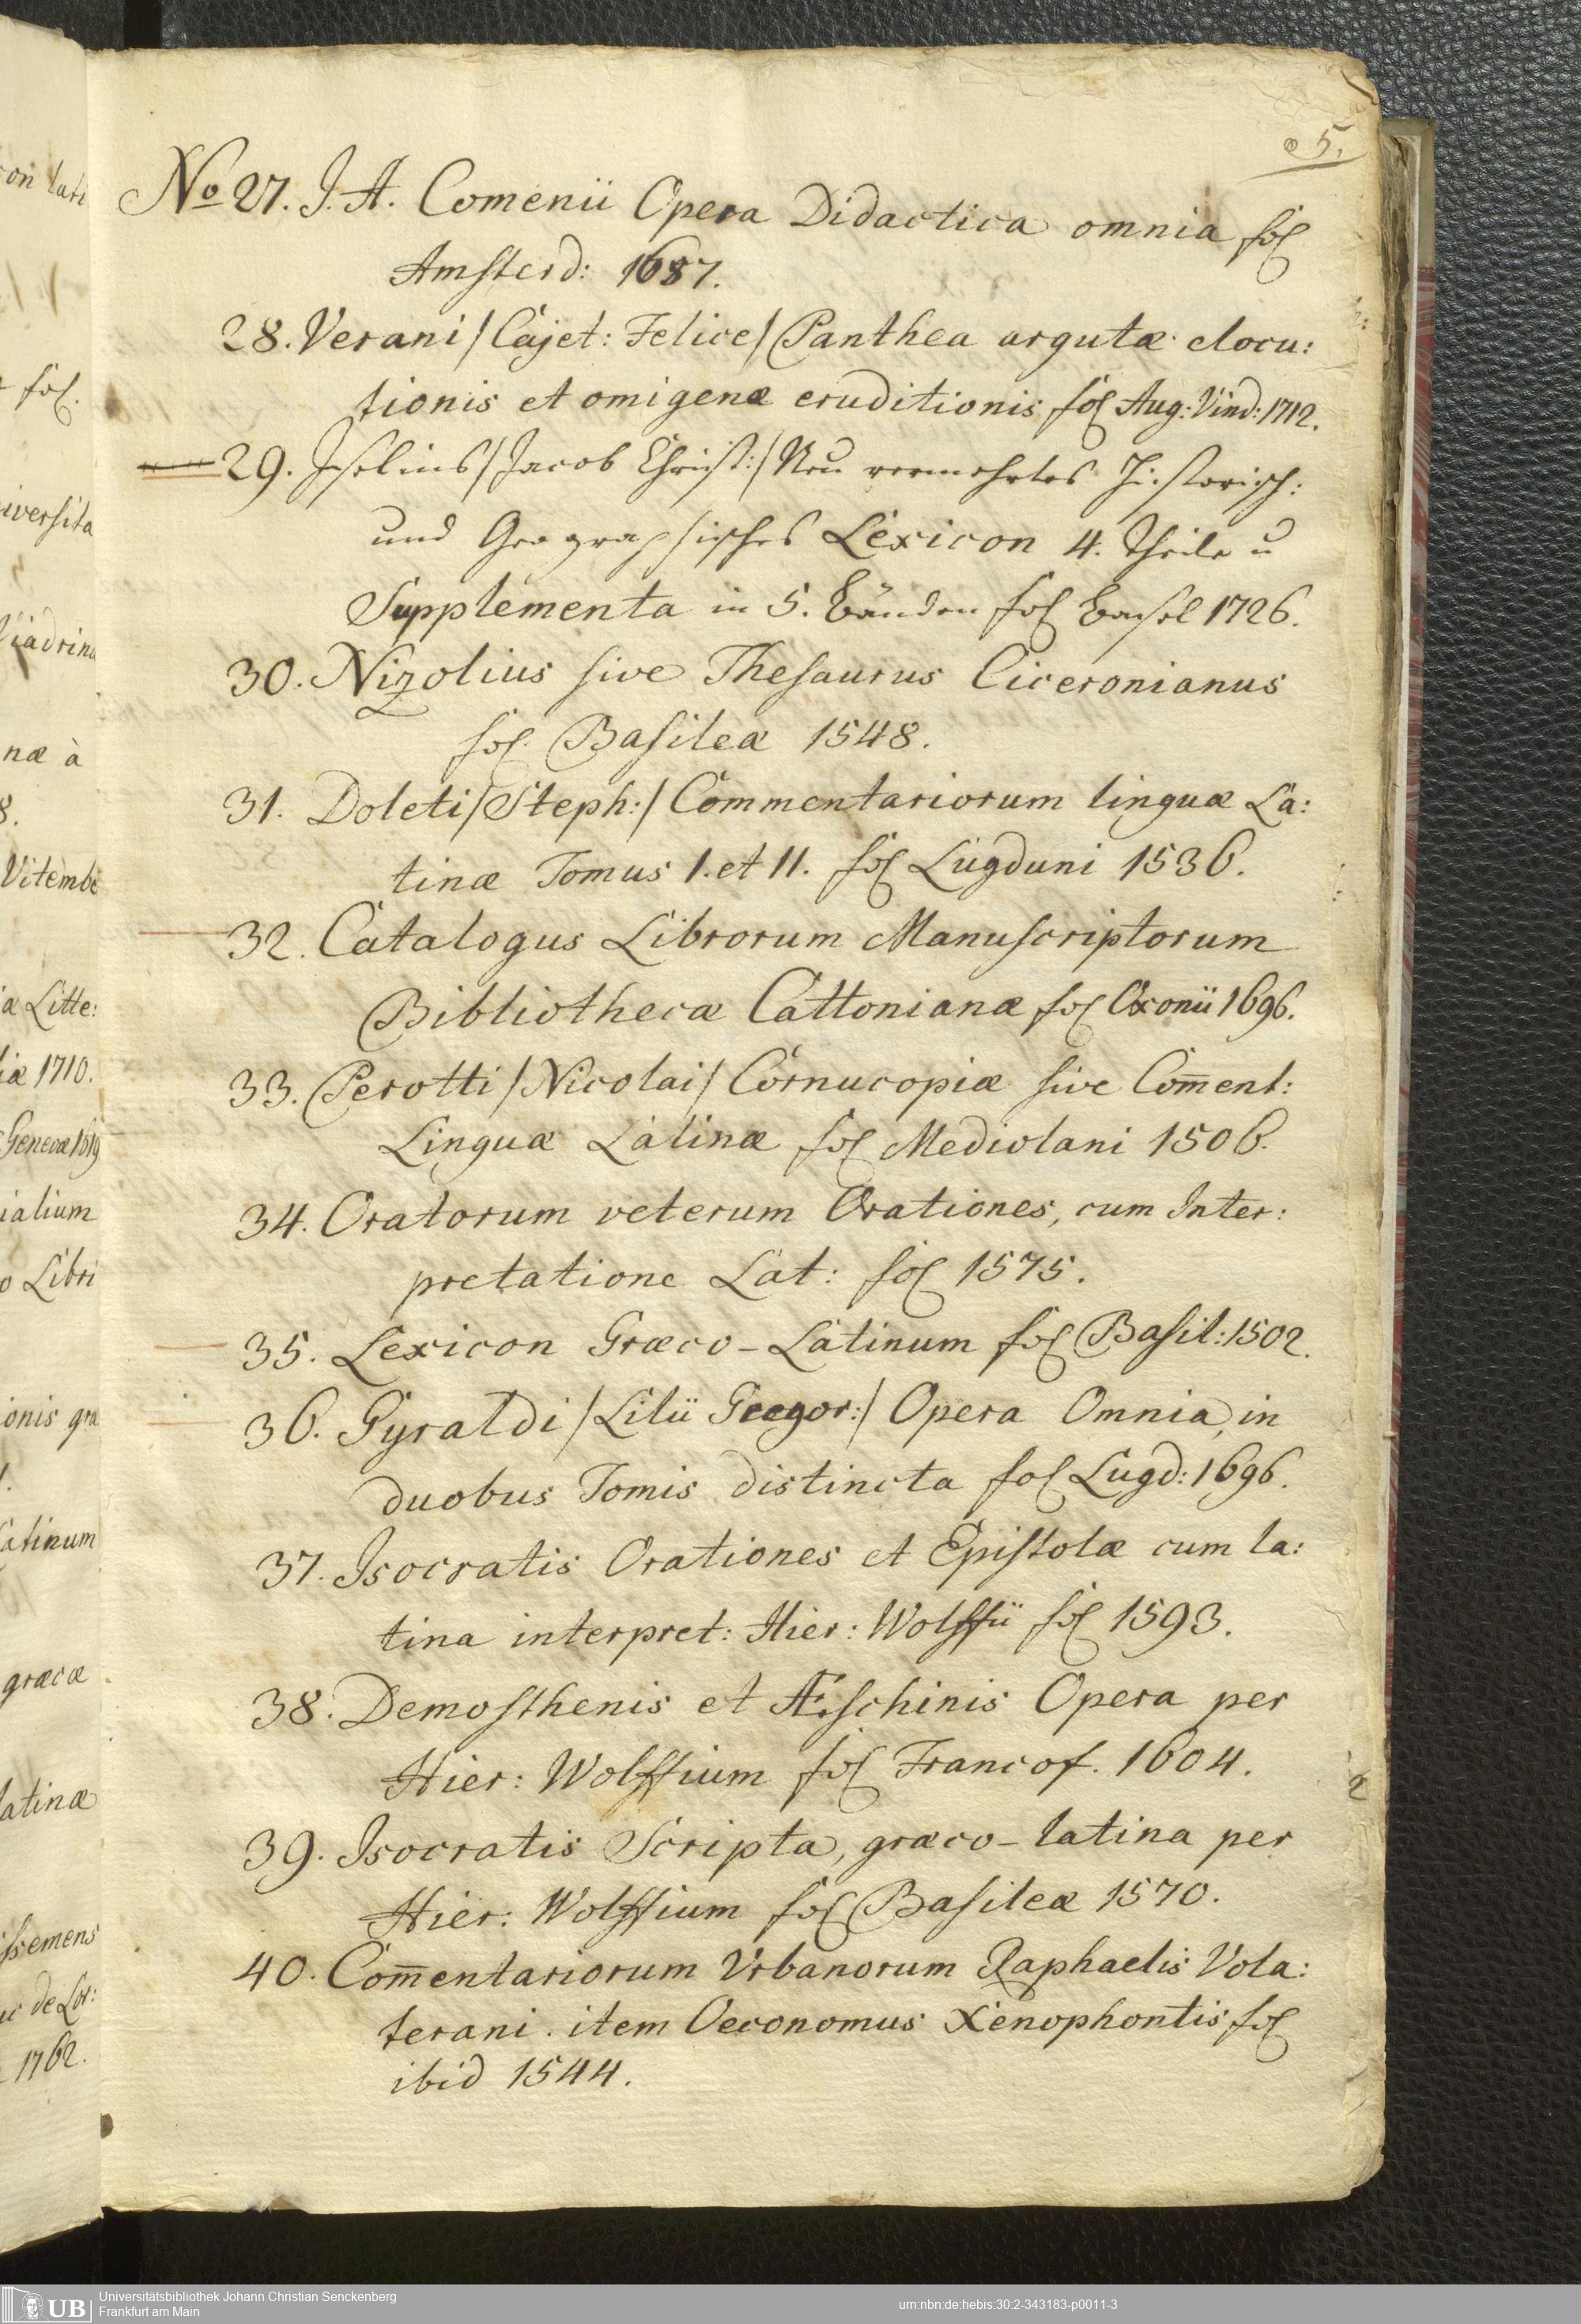 5.
No 27. J. A. Comenii Opera Didactica omnia fol
Amsterd: 1687.
28. Verani /Cajet: Felice/ Panthea argutæ elocu:
tionis et omigenæ eruditionis fol Aug: Vind: 1712.
29. Iselins /Jacob Christ:/ Neu vermehrtes Historisch:
und Geographisches Lexicon 4. Theile u
Supplementa in 5. Bänden fol Basel 1726.
30. Nizolius sive Thesaurus Ciceronianus
fol. Basileæ 1548.
31. Doleti /Steph:/ Commentariorum linguæ La:
tinæ Tomus I. et II. fol Lugduni 1536.
32. Catalogus Librorum Manuscriptorum
Bibliothecæ Cattonianæ fol Oxonii 1696.
33. Perotti /Nicolai/ Cornucopiæ sive Com̄ent:
Linguæ Latinæ fol Mediolani 1506.
34. Oratorum veterum Orationes, cum Inter:
pretatione Lat: fol 1575.
35. Lexicon Græco-Latinum fol Basil: 1502.
36. Gyraldi /Lilii Gregor:/ Opera Omnia, in
duobus Tomis distincta fol Lugd: 1696.
37. Isocratis Orationes et Epistolæ cum la:
tina interpret: Hier: Wolffii fol 1593.
38. Demosthenis et Æschinis Opera per
Hier: Wolffium fol Francof. 1604.
39. Isocratis Scripta, græco-latina per
Hier: Wolffium fol Basileæ 1570.
40. Com̄entariorum Urbanorum Raphaelis Vola:
terani. item Oeconomus Xenophontis fol
ibid 1544.
on lati
fol.
iversita
Viadrina
næ à
8.
Vitembe
æ Litte:
iæ 1710.
Genevæ 1619
ialium
o Libri
ionis gra
atinum
græcæ
latinæ
ssemens
de Lor:
1762.
UB
Universitätsbibliothek Johann Christian Senckenberg
Frankfurt am Main
urn:nbn:de:hebis:30:2-343183-p0011-3